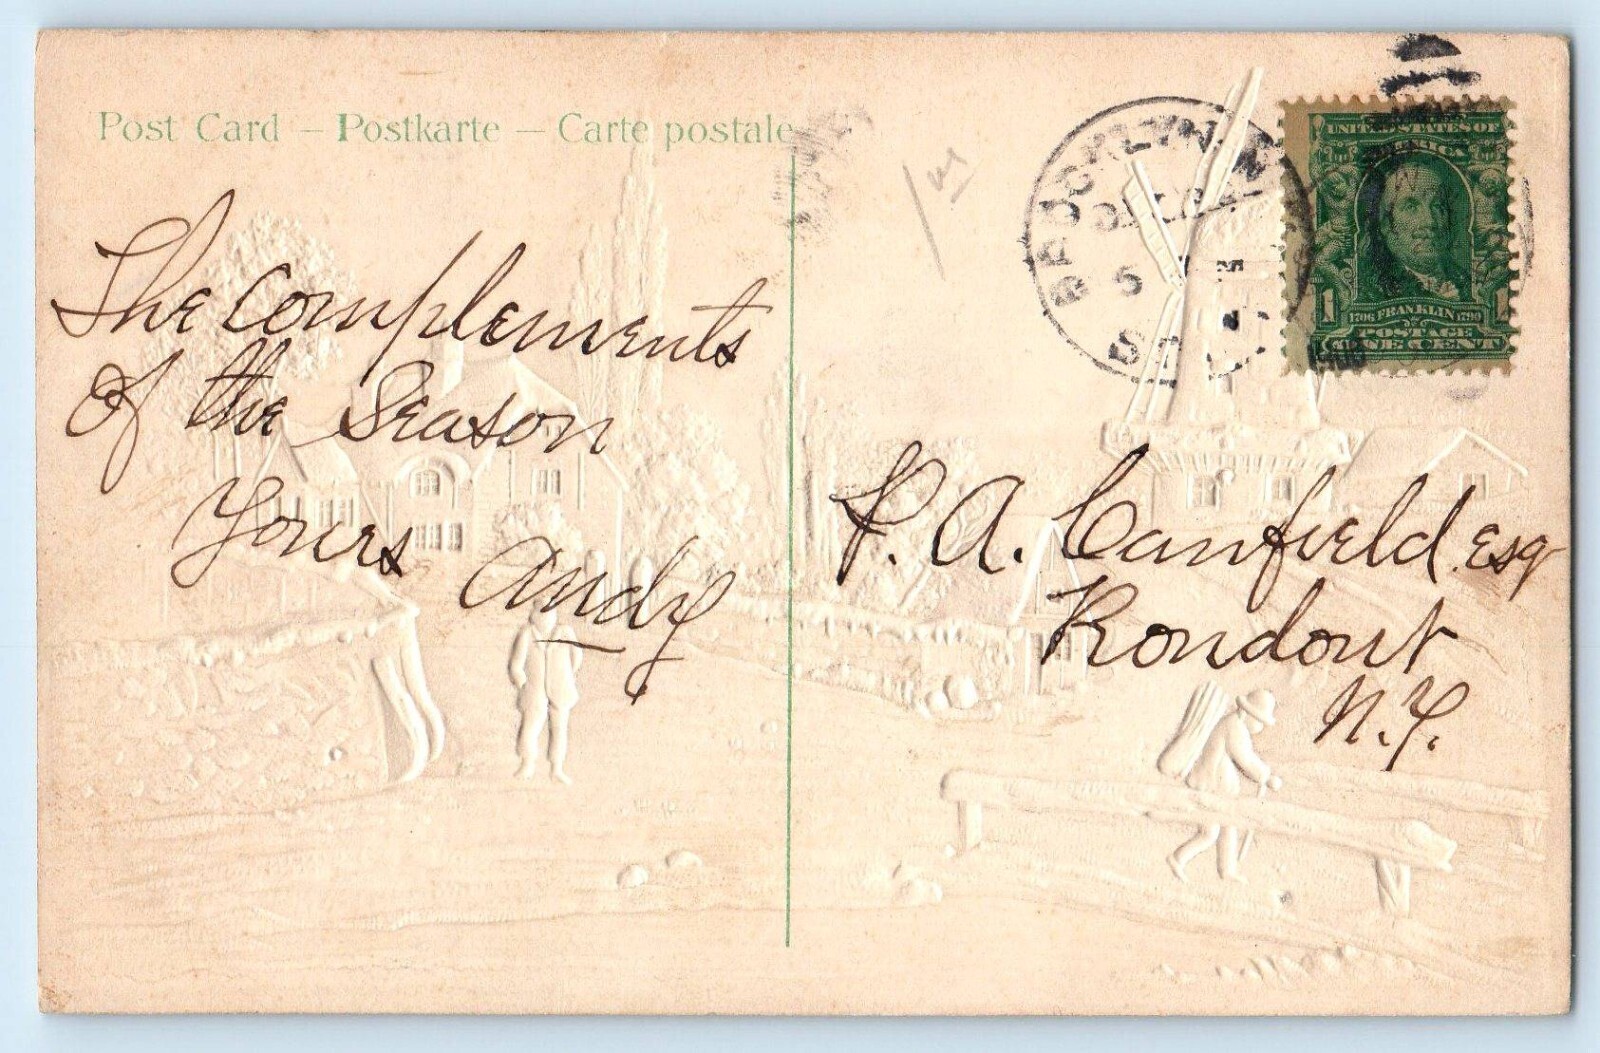 Post Card – Postkarte – Carte postale
The Complements
of the Season
Yours
Andy
BROOKLYN
5
UNITED STATES OF
AMERICA
1
1706 FRANKLIN 1790
POSTAGE
ONE CENT
P. A. Canfield Esq
Rondout
N.Y.